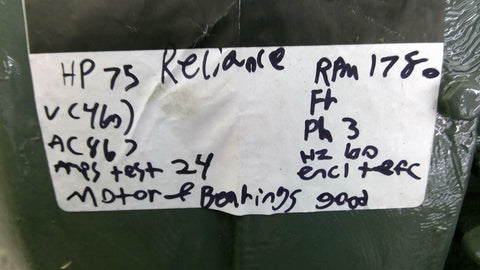 Reliance
HP 75 RPM 1780
V (460) Fr
A (86) Ph 3
HZ 60
Amps test 24 encl tefc
Motor & Bearings good